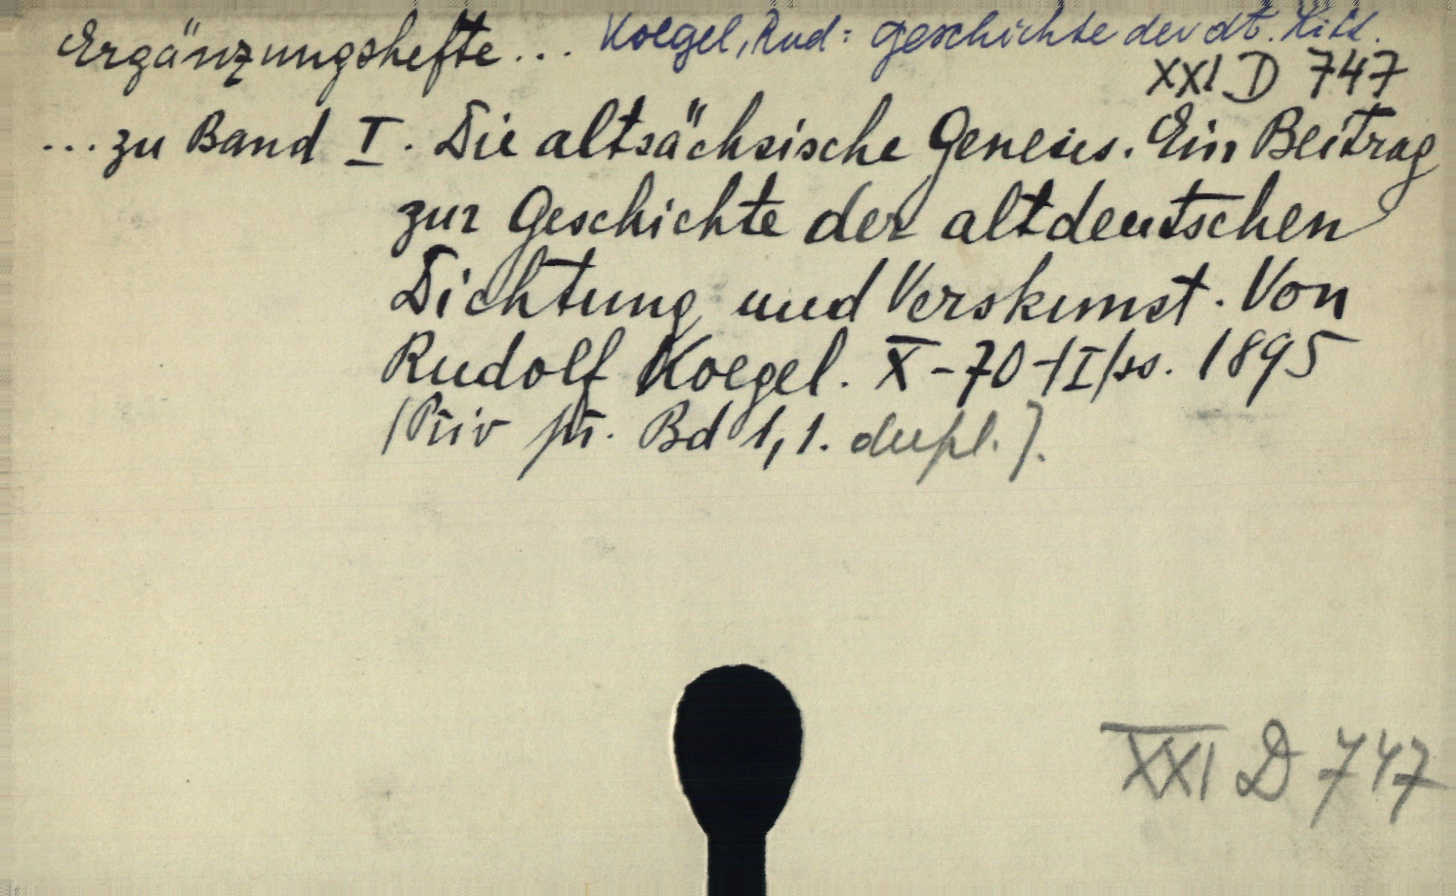 Ergänzungshefte... Koegel, Rud: Geschichte der dt. Litt.
XXI D 747
... zu Band I. Die altsächsische Genesis. Ein Beitrag
zur Geschichte der altdeutschen
Dichtung und Verskunst. Von
Rudolf Koegel. X-70+I/ss. 1895
Bd 1,1. dupl.).
XXI D 747